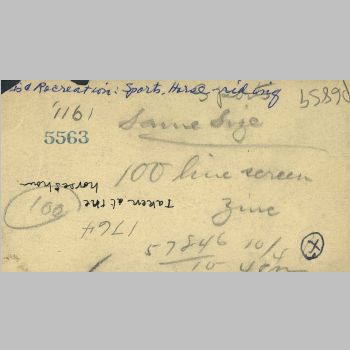 & Recreation: Sports, Horse riding
1911.
5563
Same Size
100 line screen
Zinc
100
Taken at the
horse show
1764
57846 10/4
10
X